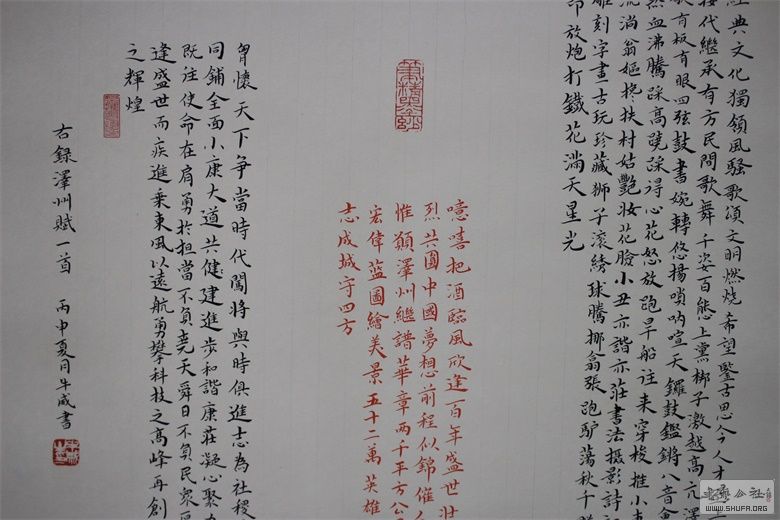 經典文化獨領風騷歌頌文明燃燒希望鑒古思今人才
接代繼承有方民間歌舞千姿百態上黨梆子激越高亢澤
有板有眼四弦鼓書婉轉悠揚嗩吶喧天鑼鼓鏗鏘八音會
熱血沸騰踩高蹺踩得心花怒放跑旱船往来穿梭推小車
流淌翁嫗攙扶村姑艷妝花臉小丑亦諧亦莊書法摄影詩
雕刻字畫古玩珍藏獅子滾綉球騰挪翕張跑驴蕩秋千
印放炮打鐵花滿天星光
噫嘻把酒臨風欣逢百年盛世壯
烈共圆中國夢想前程似錦催人
惟願澤州繼譜華章两千平方公
宏偉藍圖繪美景五十二萬英雄
志成城守四方
胷懷天下争當時代闖將與時俱進志為社稷
同鋪全面小康大道共健建進步和諧康莊凝心聚力
既注使命在肩勇於担當不負堯天舜日不負民衆
逢盛世而疾進乘東風以遠航勇攀科技之高峰再創
之輝煌
右錄澤州賦一首 丙申夏月牛咸書
書法公社
WWW.SHUFA.ORG